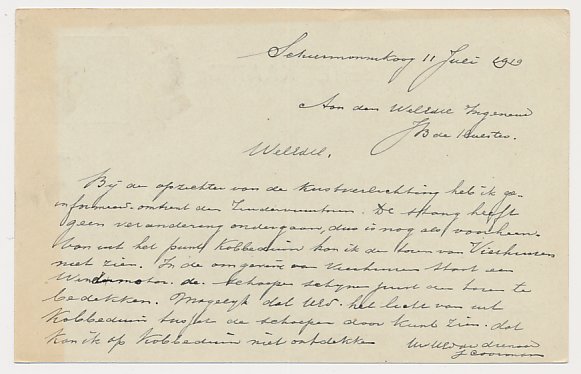 Schiermonnikoog 11 Juli 1919
Aan den WelEdel Ingenieur
JB de
WelEdel.
Bij de opzichter van de kustverlichting heb ik ge-
informeerd omtrent den De stang heeft
geen verandering ondergaan, dus is nog als voorheen.
Van uit het punt Kobbeduin kan ik de toren van Vierhuizen
niet zien. In de omgeving van Vierhuizen staat een
Windmotor. de schoepen schijnen juist den toren te
bedekken. Mogelyk dat UEd. het licht van uit
Kobbeduin tusschen de schoepen door kunt zien. dat
kan ik op Kobbeduin niet ontdekken
UwUEd dw dienaar